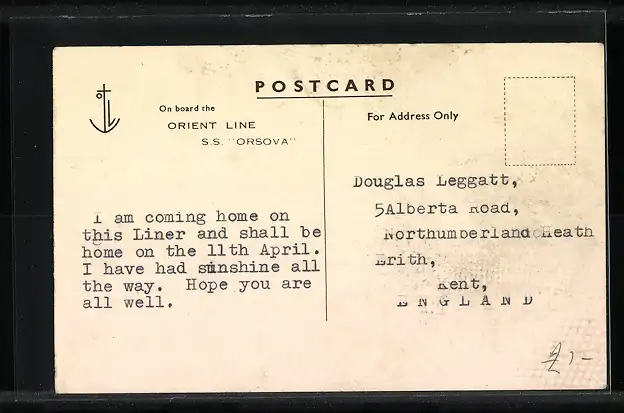 POSTCARD
On board the
ORIENT LINE
S.S. "ORSOVA"
For Address Only
I am coming home on
this Liner and shall be
home on the 11th April.
I have had sunshine all
the way. Hope you are
all well.
Douglas Leggatt,
5Alberta Road,
Northumberland Heath
Erith,
Kent,
ENGLAND